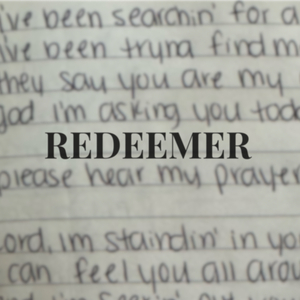 i've been searchin' for a
i've been tryna find m
they say you are my
god i'm asking you toda
REDEEMER
please hear my prayer
Lord, im standin' in yo
i can feel you all arou